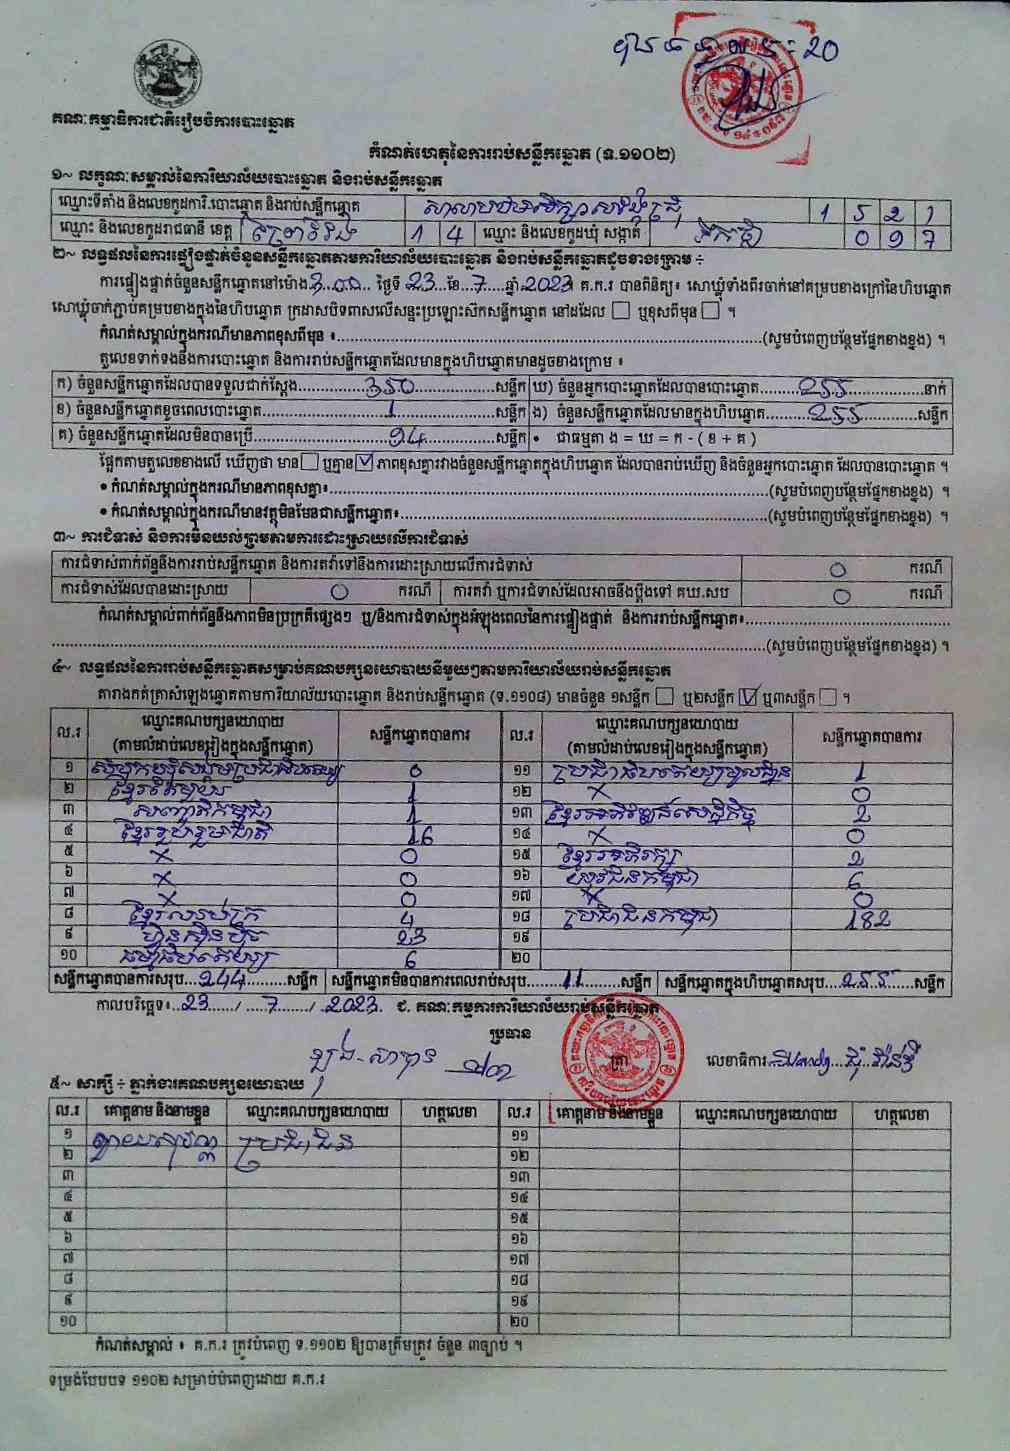 20
គណៈកម្មាធិការជាតិរៀបចំការបោះឆ្នោត
កំណត់ហេតុនៃការរាប់សន្លឹកឆ្នោត (ទ.១១០២)
១~ លក្ខណៈសម្គាល់នៃការិយាល័យបោះឆ្នោត និងរាប់សន្លឹកឆ្នោត
ឈ្មោះទីតាំង និងលេខកូដការិ.បោះឆ្នោត និងរាប់សន្លឹកឆ្នោត 1 5 2 1
ឈ្មោះ និងលេខកូដរាជធានី ខេត្ត ព្រៃវែង 1 4 ឈ្មោះ និងលេខកូដឃុំ សង្កាត់ 0 9 7
២~ លទ្ធផលនៃការផ្ទៀងផ្ទាត់ចំនួនសន្លឹកឆ្នោតតាមការិយាល័យបោះឆ្នោត និងរាប់សន្លឹកឆ្នោតដូចខាងក្រោម ÷
ការផ្ទៀងផ្ទាត់ចំនួនសន្លឹកឆ្នោតនៅម៉ោង 3.00 ថ្ងៃទី 23 ខែ 7 ឆ្នាំ 2023 គ.ក.រ បានពិនិត្យ៖ សោឃ្លុំទាំងពីរចាក់នៅគម្របខាងក្រៅនៃហិបឆ្នោត
សោឃ្លុំចាក់ភ្ជាប់គម្របខាងក្នុងនៃហិបឆ្នោត ក្រដាសបិទពាសលើសន្ទះប្រឡោះស៊កសន្លឹកឆ្នោត នៅដដែល ☐ ឬខុសពីមុន ☐ ។
កំណត់សម្គាល់ក្នុងករណីមានភាពខុសពីមុន ៖ (សូមបំពេញបន្ថែមផ្នែកខាងខ្នង) ។
តួលេខទាក់ទងនឹងការបោះឆ្នោត និងការរាប់សន្លឹកឆ្នោតដែលមានក្នុងហិបឆ្នោតមានដូចខាងក្រោម ៖
ក) ចំនួនសន្លឹកឆ្នោតដែលបានទទួលជាក់ស្តែង 350 សន្លឹក ឃ) ចំនួនអ្នកបោះឆ្នោតដែលបានបោះឆ្នោត 255 នាក់
ខ) ចំនួនសន្លឹកឆ្នោតខូចពេលបោះឆ្នោត 1 សន្លឹក ង) ចំនួនសន្លឹកឆ្នោតដែលមានក្នុងហិបឆ្នោត 255 សន្លឹក
គ) ចំនួនសន្លឹកឆ្នោតដែលមិនបានប្រើ 94 សន្លឹក • ជាធម្មតា ង = ឃ = ក - ( ខ + គ )
ផ្អែកតាមតួលេខខាងលើ ឃើញថា មាន ☐ ឬគ្មាន ☑ ភាពខុសគ្នារវាងចំនួនសន្លឹកឆ្នោតក្នុងហិបឆ្នោត ដែលបានរាប់ឃើញ និងចំនួនអ្នកបោះឆ្នោត ដែលបានបោះឆ្នោត ។
• កំណត់សម្គាល់ក្នុងករណីមានភាពខុសគ្នា៖ (សូមបំពេញបន្ថែមផ្នែកខាងខ្នង) ។
• កំណត់សម្គាល់ក្នុងករណីមានវត្ថុមិនមែនជាសន្លឹកឆ្នោត៖ (សូមបំពេញបន្ថែមផ្នែកខាងខ្នង) ។
៣~ ការជំទាស់ និងការមិនយល់ព្រមតាមការដោះស្រាយលើការជំទាស់
ការជំទាស់ពាក់ព័ន្ធនឹងការរាប់សន្លឹកឆ្នោត និងការតវ៉ាទៅនឹងការដោះស្រាយលើការជំទាស់ 0 ករណី
ការជំទាស់ដែលបានដោះស្រាយ 0 ករណី ការតវ៉ា ឬការជំទាស់ដែលអាចនឹងប្តឹងទៅ គឃ.សប 0 ករណី
កំណត់សម្គាល់ពាក់ព័ន្ធនឹងភាពមិនប្រក្រតីផ្សេងៗ ឬ/និងការជំទាស់ក្នុងអំឡុងពេលនៃការផ្ទៀងផ្ទាត់ និងការរាប់សន្លឹកឆ្នោត៖
(សូមបំពេញបន្ថែមផ្នែកខាងខ្នង) ។
៤~ លទ្ធផលនៃការរាប់សន្លឹកឆ្នោតសម្រាប់គណបក្សនយោបាយនីមួយៗតាមការិយាល័យរាប់សន្លឹកឆ្នោត
តារាងកត់ត្រាសំឡេងឆ្នោតតាមការិយាល័យបោះឆ្នោត និងរាប់សន្លឹកឆ្នោត (ទ.១១០៨) មានចំនួន ១សន្លឹក ☐ ឬ២សន្លឹក ☑ ឬ៣សន្លឹក ☐ ។
ល.រ ឈ្មោះគណបក្សនយោបាយ (តាមលំដាប់លេខរៀងក្នុងសន្លឹកឆ្នោត) សន្លឹកឆ្នោតបានការ ល.រ ឈ្មោះគណបក្សនយោបាយ (តាមលំដាប់លេខរៀងក្នុងសន្លឹកឆ្នោត) សន្លឹកឆ្នោតបានការ
១ សំបុកឃ្មុំសង្គមប្រជាធិបតេយ្យ 0 ១១ ប្រជាធិបតេយ្យមូលដ្ឋាន 1
២ ខ្មែរតែមួយ 1 ១២ × 0
៣ សញ្ជាតិកម្ពុជា 1 ១៣ ខ្មែរអភិវឌ្ឍន៍សេដ្ឋកិច្ច 2
៤ ខ្មែររួបរួមជាតិ 16 ១៤ × 0
៥ × 0 ១៥ ខ្មែរអភិរក្ស 2
៦ × 0 ១៦ យុវជនកម្ពុជា 6
៧ × 0 ១៧ × 0
៨ ខ្មែរឈប់ក្រ 4 ១៨ ប្រជាជនកម្ពុជា 182
៩ ហ៊្វុនស៊ិនប៉ិច 23 ១៩
១០ ធម្មាធិបតេយ្យ 6 ២០
សន្លឹកឆ្នោតបានការសរុប 244 សន្លឹក សន្លឹកឆ្នោតមិនបានការពេលរាប់សរុប 11 សន្លឹក សន្លឹកឆ្នោតក្នុងហិបឆ្នោតសរុប 255 សន្លឹក
កាលបរិច្ឆេទ៖ 23 / 7 / 2023. ជ. គណៈកម្មការការិយាល័យរាប់សន្លឹកឆ្នោត
ប្រធាន
ត្រា លេខាធិការ
៥~ សាក្សី ÷ ភ្នាក់ងារគណបក្សនយោបាយ
ល.រ គោត្តនាម និងនាមខ្លួន ឈ្មោះគណបក្សនយោបាយ ហត្ថលេខា ល.រ គោត្តនាម និងនាមខ្លួន ឈ្មោះគណបក្សនយោបាយ ហត្ថលេខា
១ ប្រជាជន ១១
២ ១២
៣ ១៣
៤ ១៤
៥ ១៥
៦ ១៦
៧ ១៧
៨ ១៨
៩ ១៩
១០ ២០
កំណត់សម្គាល់ ៖ គ.ក.រ ត្រូវបំពេញ ទ.១១០២ ឱ្យបានត្រឹមត្រូវ ចំនួន ៣ច្បាប់ ។
ទម្រង់បែបបទ ១១០២ សម្រាប់បំពេញដោយ គ.ក.រ